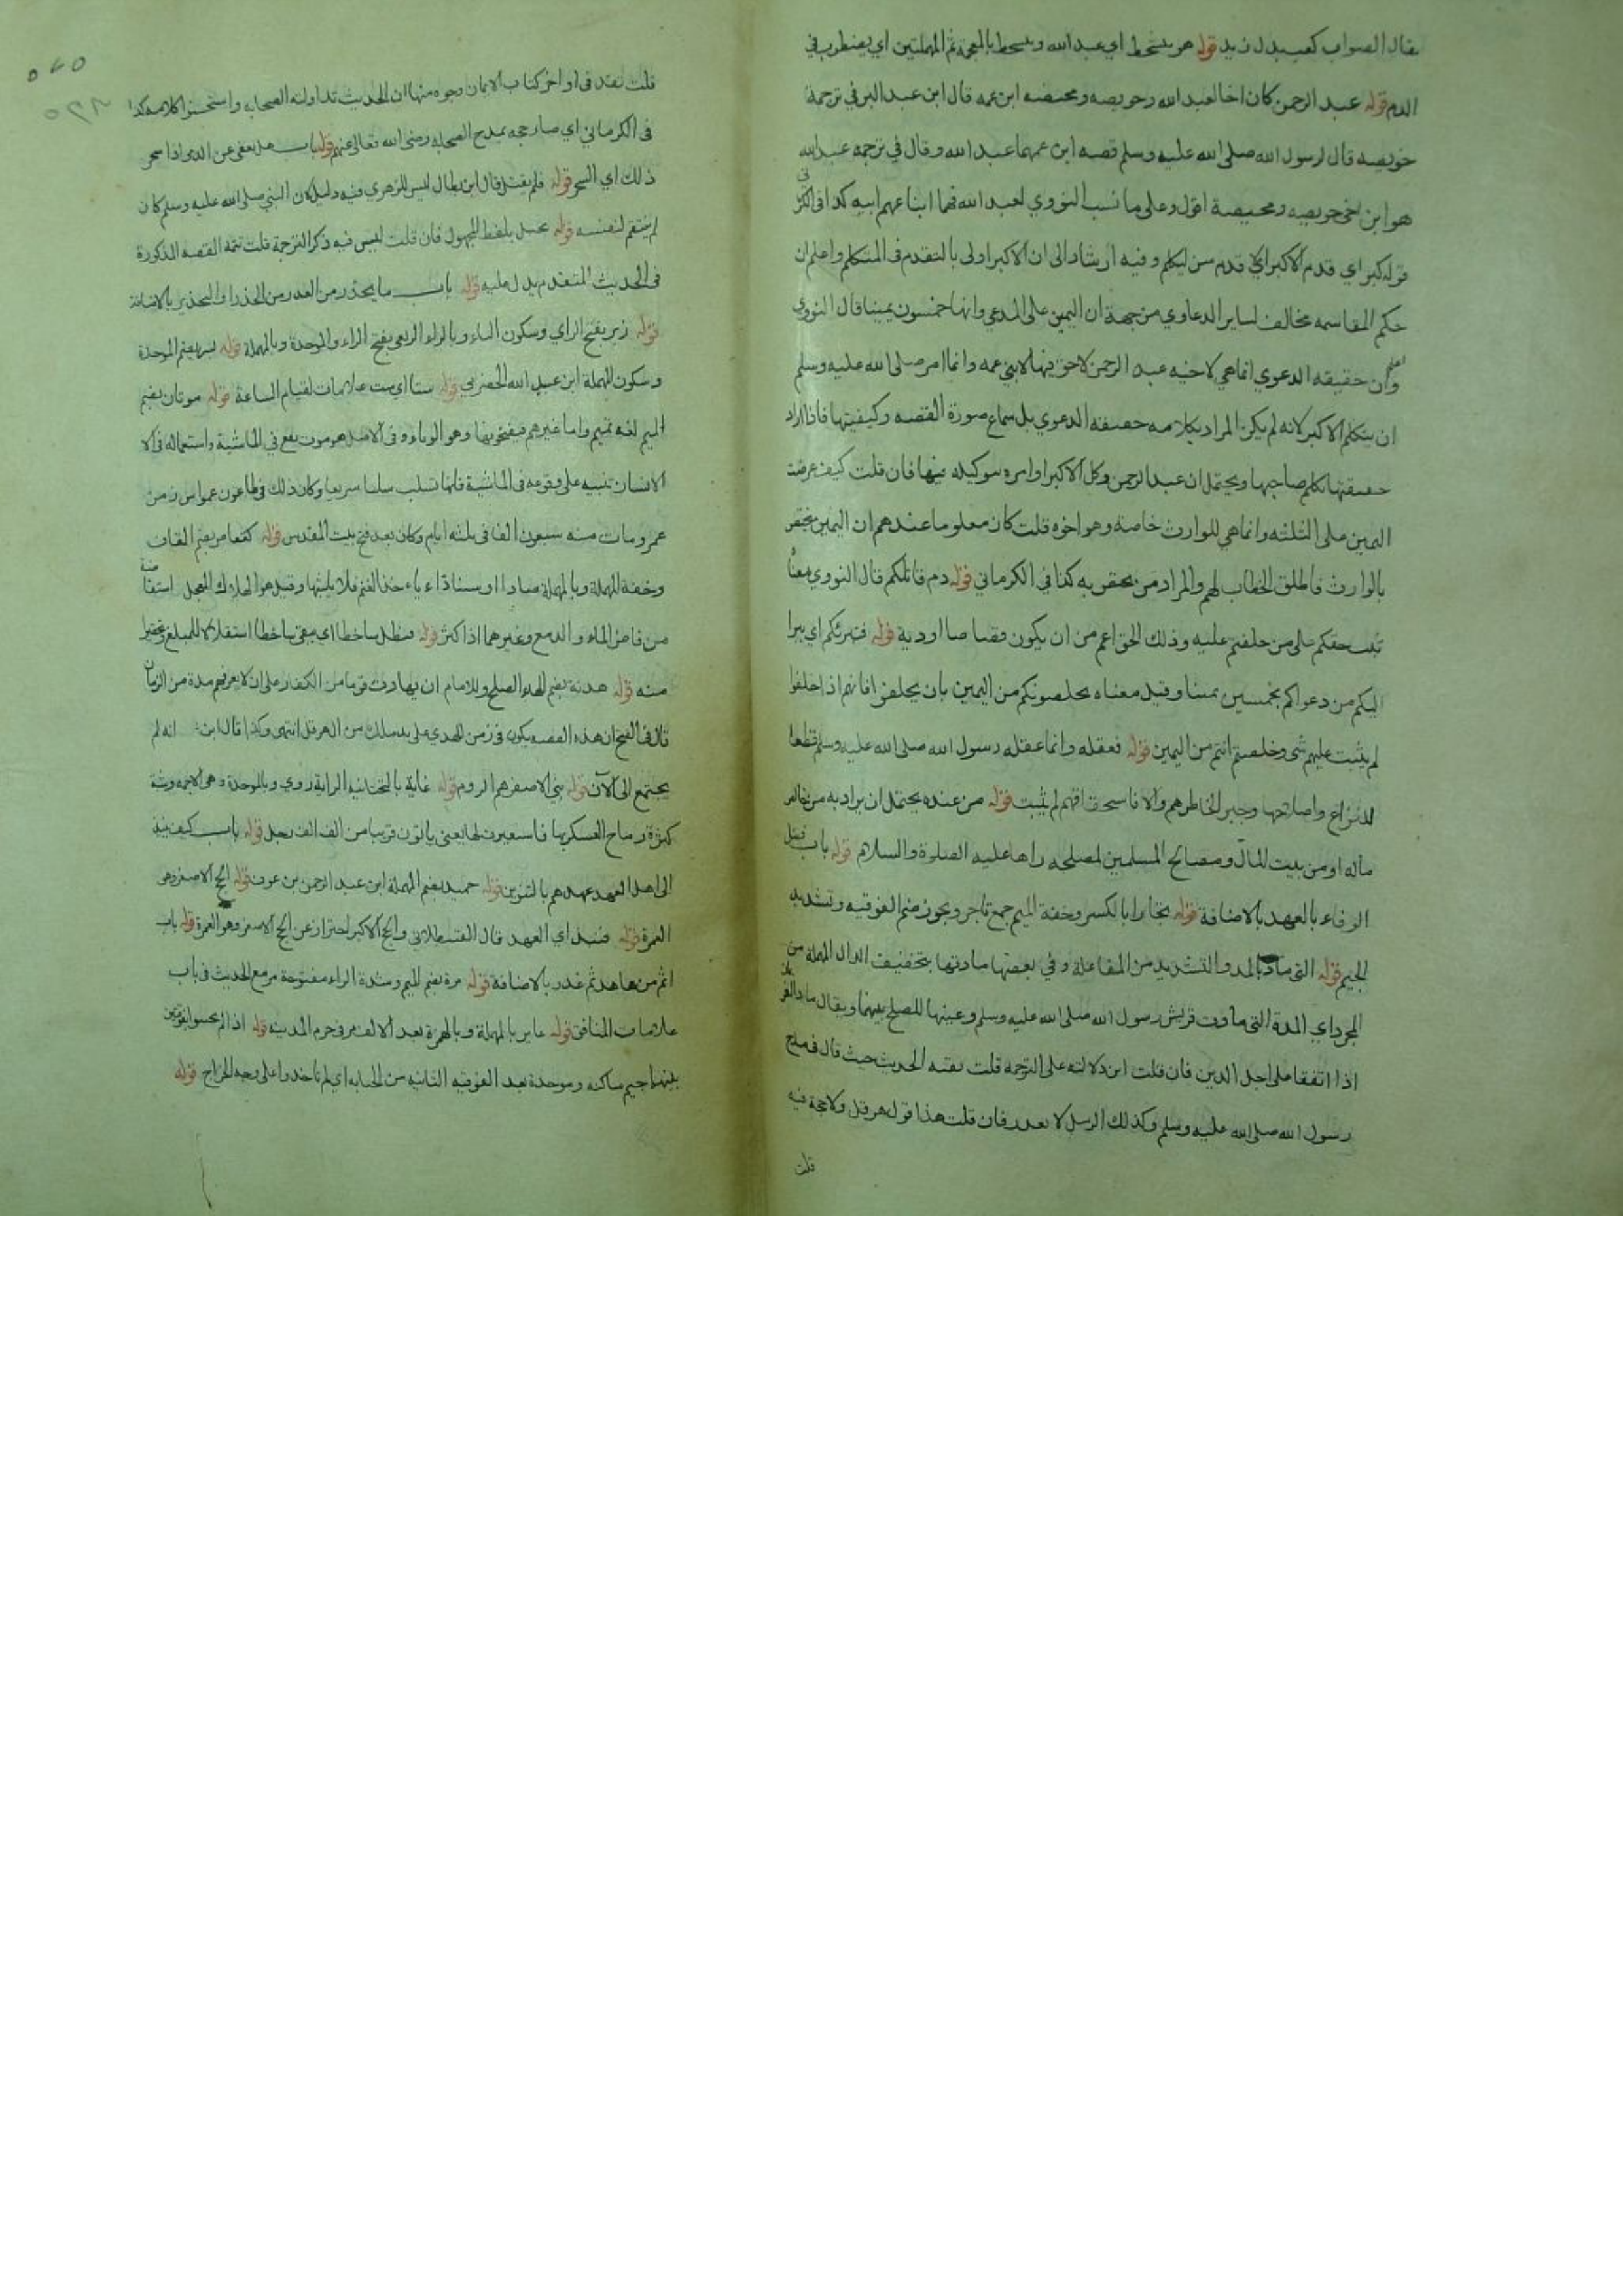 يقال الصواب كعب بدل زيد قوله هو يتشحط اي عبد الله ويتشحط بالمعجمة ثم المهملتين اي يضطرب في
الدم قوله عبد الرحمن كان اخا لعبد الله وحويصه ومحيصه ابن عمه قال ابن عبد البر في ترجمة
حويصه قال لرسول الله صلى الله عليه وسلم قصه ابن عمهما عبد الله وقال في ترجمه عبد الله
هو ابن اخي حويصه ومحيصة اقول وعلى ما نسب النووي لعبد الله فهما ابنا عم ابيه كذا في
قوله كبر اي قدم الاكبر اي قدم سن ليكلم وفيه ارشاد الى ان الاكبر اولى بالتقدم في المتكلم واعلم ان
حكم القسامه مخالف لساير الدعاوي من جهة ان اليمين على المدعي وانها خمسون يمينا قال النووي
اعلم
وان حقيقه الدعوي انما هي لاخيه عبد الرحمن لا حق فيها لابني عمه وانما امر صلى الله عليه وسلم
ان يتكلم الاكبر لانه لم يكن المراد بكلامه حقيقة الدعوي بل سماع صورة القصه وكيفيتها فاذا اراد
حقيقتها تكلم صاحبها ويحتمل ان عبد الرحمن وكل الاكبر او امره بتوكيله فيها فان قلت كيف عرضت
اليمين على الثلثه وانما هي للوارث خاصة وهو اخوه قلت كان معلوما عندهم ان اليمين يختص
بالوارث فاطلق الخطاب لهم والمراد من يختص به كذا في الكرماني قوله دم قاتلكم قال النووي معناه
ثبت حقكم على من حلفتم عليه وذلك الحق اعم من ان يكون قصاصا او دية قوله فتبرئكم اي يبرا
اليكم من دعواكم بخمسين يمينا وقيل معناه يخلصونكم من اليمين بان يحلفوا فانهم اذا حلفوا
لم يثبت عليهم شي وخلصتم انتم من اليمين قوله فعقله وانما عقله رسول الله صلى الله عليه وسلم قطعا
للنزاع واصلاحها وجبر الخاطرهم والا فاستحقاقهم لم يثبت قوله من عنده يحتمل ان يراد به من خالص
ماله او من بيت المال ومصالح المسلمين لمصلحه راها عليه الصلوة والسلام قوله باب فضل
الوفاء بالعهد بالاضافة قوله تجارا بالكسر وخفة الجيم جمع تاجر ويجوز ضم الفوقيه وتشديد
الجيم قوله التي ماد بالمد والتشديد من المفاعلة وفي بعضها مادتها بتخفيف الدال المهملة من
المجرد اي المدة التي مادت قريش رسول الله صلى الله عليه وسلم وعينها للصلح بينهما ويقال ماد الغريمان
اذا اتفقا على اجل الدين فان قلت اين دلالته على الترجمة قلت بقية الحديث حيث قال فمدح
رسول الله صلى الله عليه وسلم وكذلك الرسل لا تغدر فان قلت هذا قول هرقل ولا حجة فيه
قلت
قلت تقدم في اواخر كتاب الايمان وجوه منها ان الحديث تداولته الصحابه واستحسنوا كلامه كذا
في الكرماني اي صار حجه بمدح الصحابه رضي الله تعالى عنهم قوله باب هل يعفى عن الذمي اذا سحر
ذلك اي السحر قوله فلم يقتل قال ابن بطال ليس للزهري فيه دليل لان النبي صلى الله عليه وسلم كان
لم ينتقم لنفسه قوله يخيل بلفظ المجهول فان قلت ليس فيه ذكر الترجمة قلت تتمه القصه المذكورة
في الحديث المتقدم يدل عليه قوله باب ما يحذر من الغدر من الحذر او التحذير بالاضافة
قوله زبر بفتح الزاي وسكون الباء وبالراء الربعي بفتح الراء والموحدة وبالمهملة قوله بسر بضم الموحدة
وسكون المهملة ابن عبيد الله الحضرمي قوله ستا اي ست علامات لقيام الساعة قوله موتان بضم
الميم لغة تميم واما غيرهم فيفتحونها وهو الوباء وفي الاصل هو موت يقع في الماشية واستعماله في الا
الانسان تنبيه على وقوعه في الماشية فانها تسلب سلبا سريعا وكان ذلك في طاعون عمواس زمن
عمر ومات منه سبعون الفا في ثلثه ايام وكان بعد فتح بيت المقدس قوله كقعاص بضم القاف
وخفة المهملة وبالمهملة
من فاض الماء والدمع وغيرهما اذا كثر قوله فيظل ساخطا اي يبقى ساخطا استقلالا للمبلغ وتحقيرا
منه قوله هدنة بضم الهاء الصلح وللامام ان يهادن قوما من الكفار على ان لا يغزوهم مدة من الزمان
قال في الفتح ان هذه القصه يكون في زمن المهدي على يد ملك من ال هرقل انتهى وكذا قال ابن انه لم
يجتمع الى الآن قوله بني الاصفر هم الروم قوله غاية بالتحتانيه الراية روي وبالموحدة وهي الاجمه وشبه
كثرة رماح العسكر بها فاستعيرت لها يعني ياتون قريبا من الف الف رجل قوله باب كيف ينبذ
الى اهل العهد عهدهم بالتنوين قوله حميد بضم المهملة ابن عبد الرحمن بن عوف قوله الحج الاصغر هي
العمرة قوله فنبذ اي العهد قال القسطلاني والحج الاكبر احتراز عن الحج الاصغر وهو العمرة قوله باب
اثم من عاهد ثم غدر بالاضافة قوله مرة بضم الميم وشدة الراء مفتوحة مر مع الحديث في باب
علامات المنافق قوله عاير بالمهملة وبالهمزة بعد الالف مر في حرم المدينه قوله اذا لم تجتبوا بفوقيتين
بينهما جيم ساكنه وموحدة بعد الفوقيه الثانيه من الجبايه اي لم تاخذوا على وجه الخراج قوله